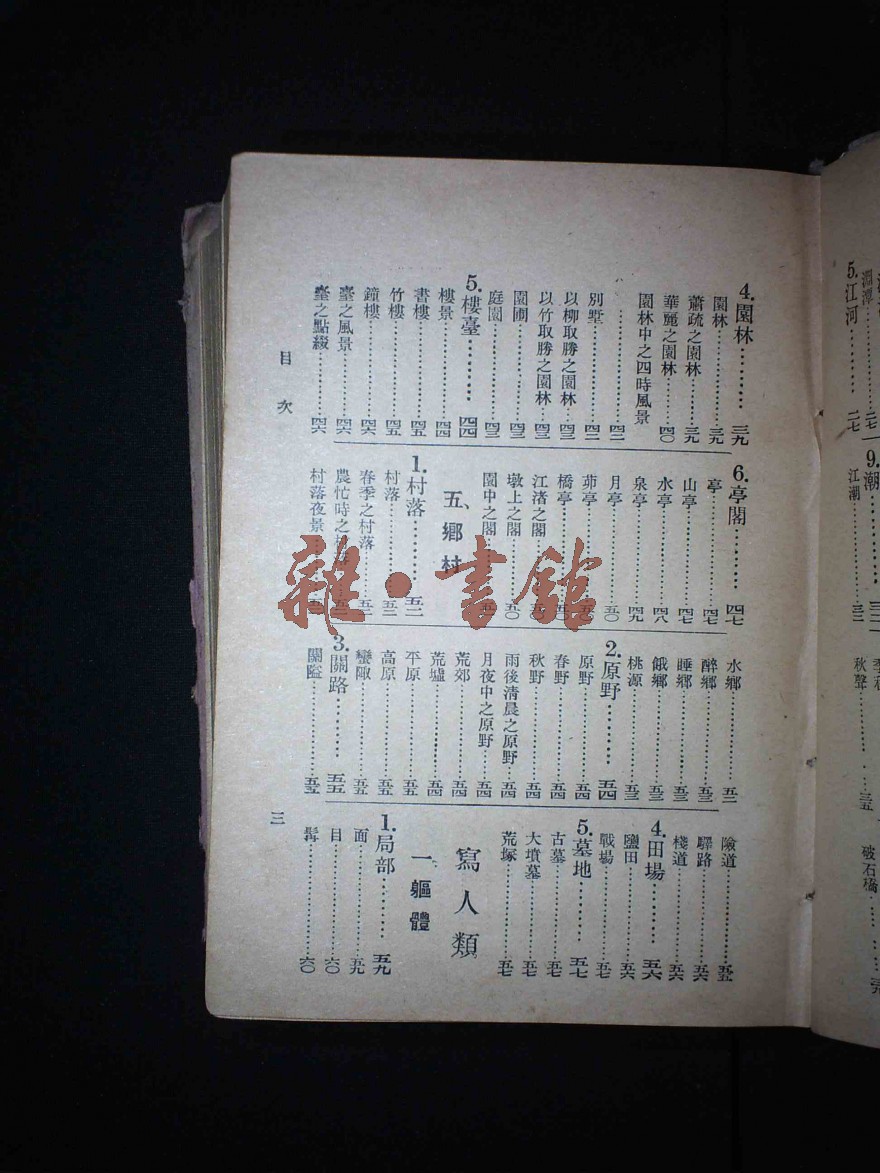 4.園林………三九
園林………三九
蕭疏之園林……三九
華麗之園林……四〇
園林中之四時風景
………四二
別墅………四二
以柳取勝之園林…四三
以竹取勝之園林…四三
園圃………四三
庭園………四三
5.樓臺………四四
樓景………四四
書樓………四五
竹樓………四五
鐘樓………四六
臺之風景……四六
臺之點綴……四六
6.亭閣………四七
亭………四七
山亭………四七
水亭………四八
泉亭………四九
月亭………五〇
茆亭………五〇
橋亭………
江渚之閣……
墩上之閣……五〇
園中之閣
五、鄉村
1.村落………五二
村落………五二
春季之村落……五二
農忙時之
村落夜景
水鄉………五二
醉鄉………五三
睡鄉………五三
餓鄉………五三
桃源………五三
2.原野………五四
原野………五四
春野………五四
秋野………五四
雨後清晨之原野…五四
月夜中之原野…五四
荒郊………五四
荒墟………五四
平原………五五
高原………五五
蠻陬………五五
3.關路………五五
關隘………五五
險道………五五
驛路………五六
棧道………五六
4.田場………五六
鹽田………五六
戰場………五七
5.墓地………五七
古墓………五七
大墳墓………五七
荒塚………五七
寫人類
一、軀體
1.局部………五九
面………五九
目………六〇
髯………六〇
目次
三
雜·書館
淵潭………二七
5.江河………二七
9.潮………三二
江潮………三二
秋聲………三五
破石橋